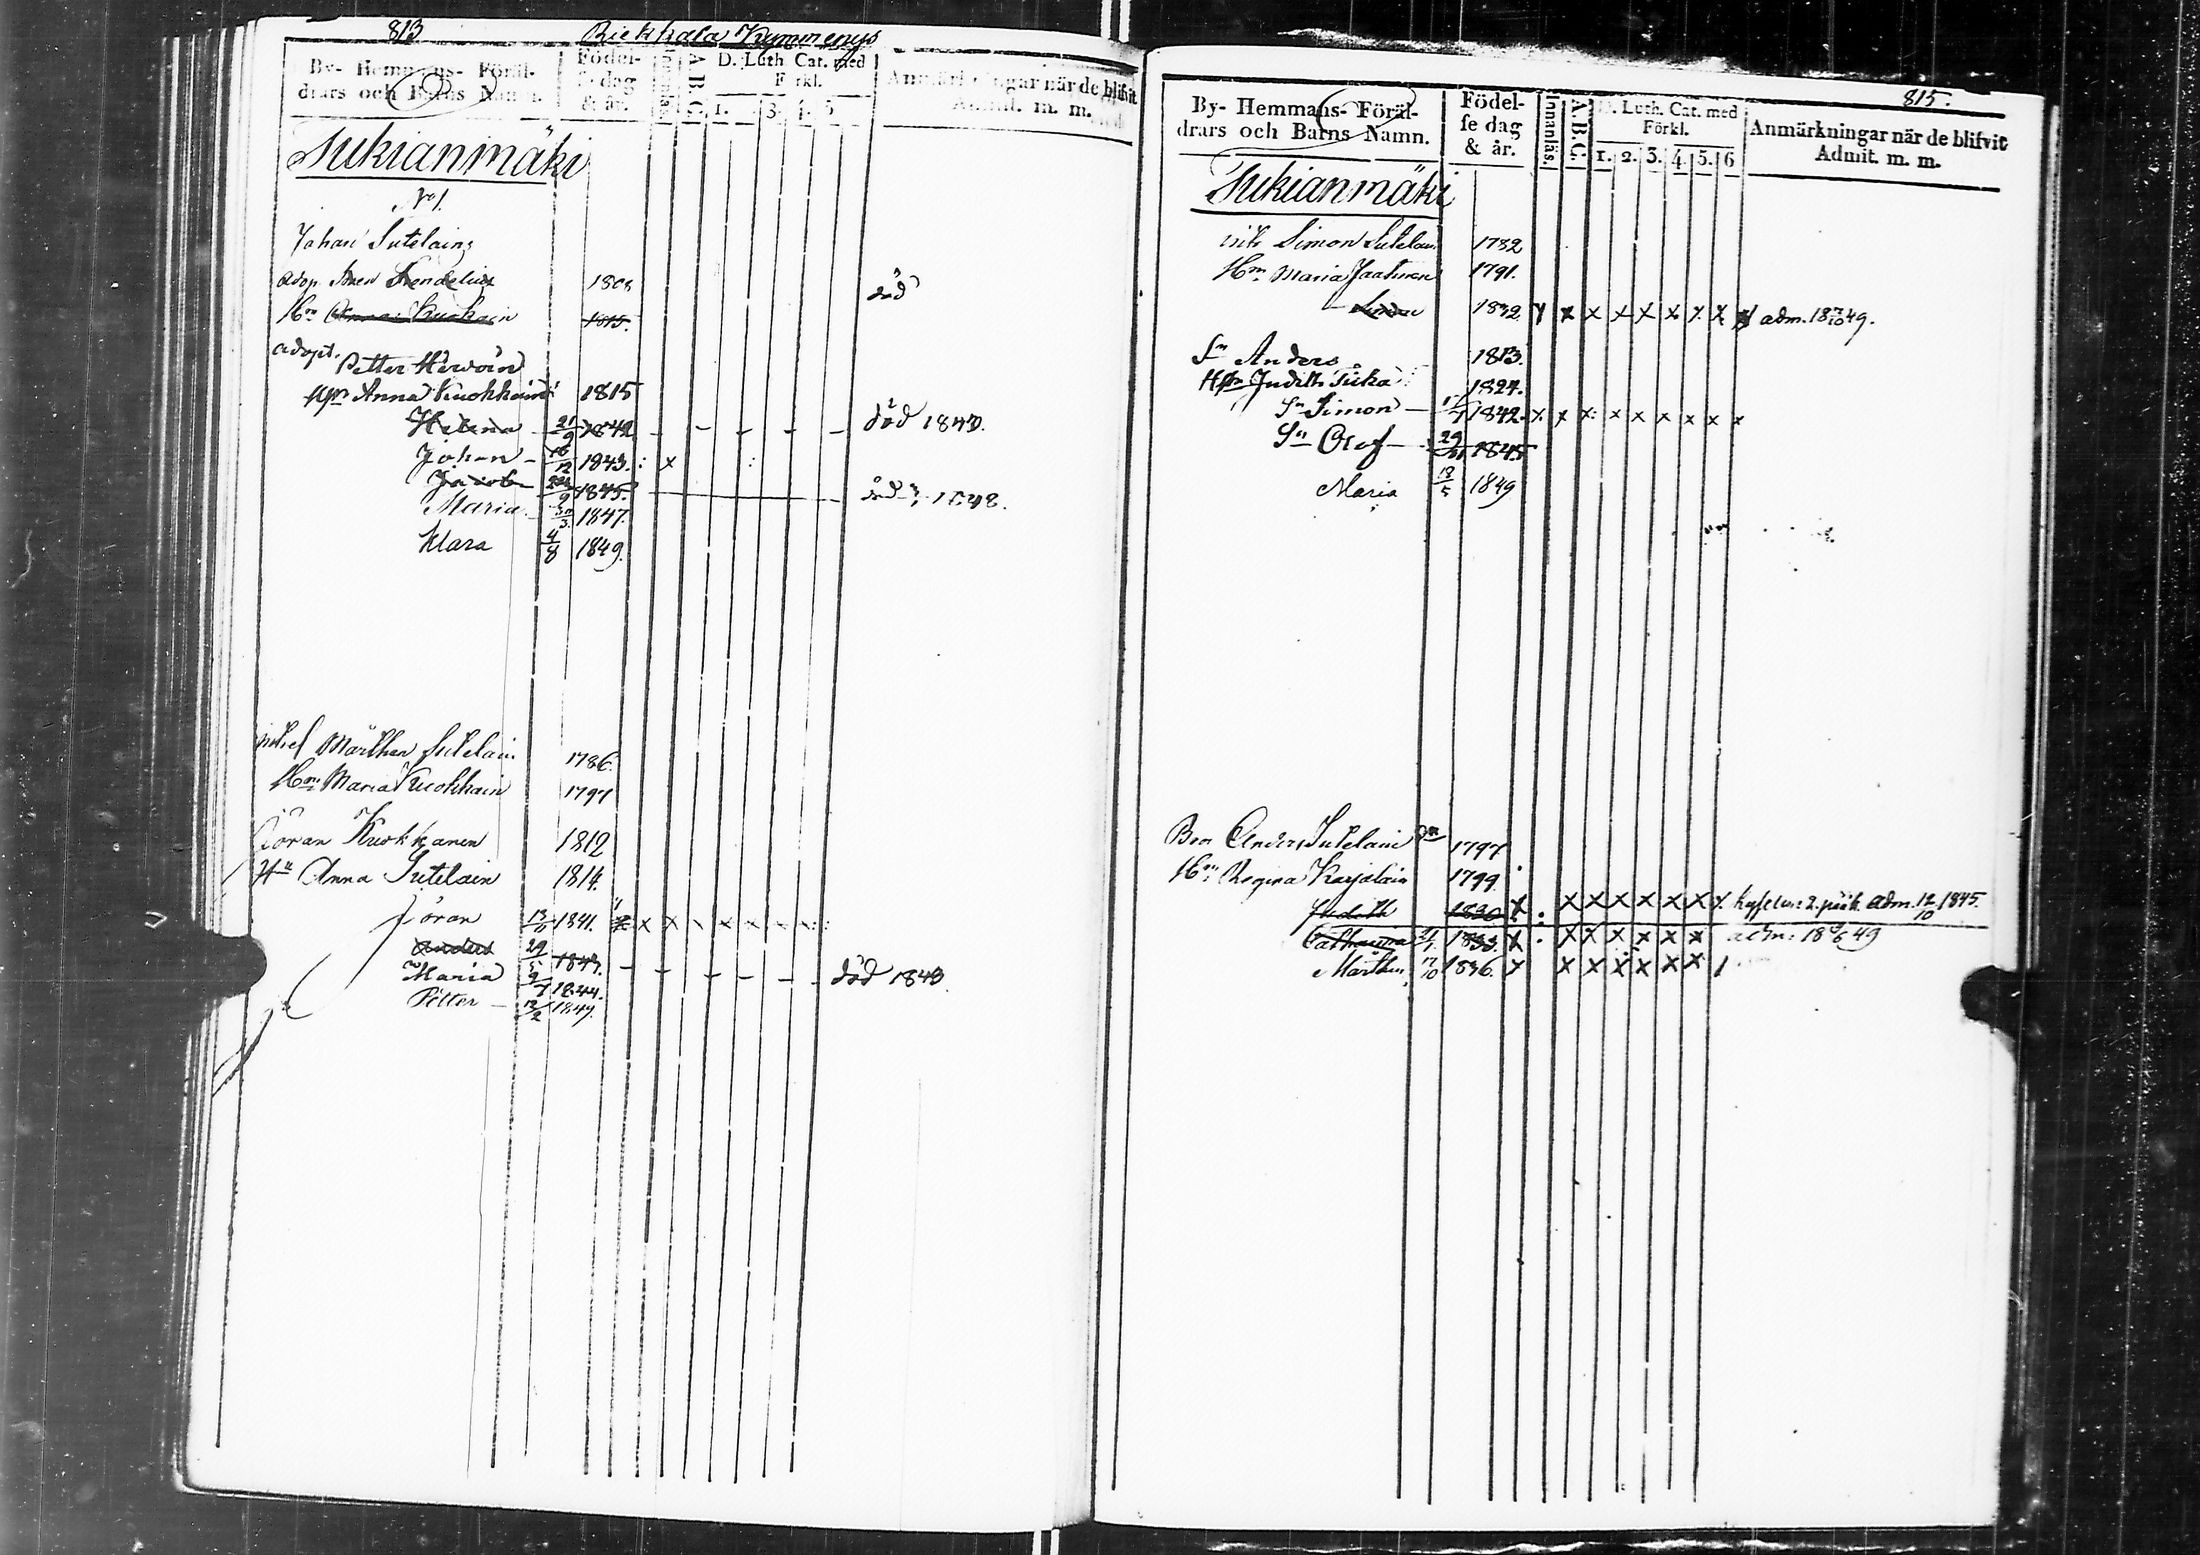 813
Riekkala Kymmenys
By- Hemmans- Föräl-
drars och Barns Namn.
Födel-
se dag
& år.
Innanläs.
A.B.C.
D. Luth. Cat. med
Förkl.
1. 3. 4. 5
Anmärkningar när de blifvit
Admit. m. m.
Sukianmäki
No 1.
Johan Sutelain
adop. 1808 död
Hn Anna Kuokkain 1815.
adopt.
Petter Härvöin
Hn Anna Kuokkain 1815
Helena 21/9 1842 - - - - - död 1843.
Johan - 16/12 1843. : x :
Jacob 24/9 1845. död 1848.
Maria 30/3 1847.
Klara 4/8 1849.
Mårthen Sutelain 1786.
Hn Maria Kuokkain 1797
Göran Kuokkanen 1812
Hn Anna Sutelain 1814.
Göran 13/11 1841. x x x x x x x
Anders 29/5 1843. - - - - - - död 1843.
Maria 9/7 1844.
Petter - 13/2 1849.
815.
By- Hemmans- Föräl-
drars och Barns Namn.
Födel-
se dag
& år.
Innanläs.
A.B.C.
D. Luth. Cat. med
Förkl.
1. 2. 3. 4. 5. 6
Anmärkningar när de blifvit
Admit. m. m.
Sukianmäki
Simon Sutelain 1782
Hn Maria Jaatinen 1791.
1832 x x x x x x x x adm. 18 7/10 49.
Sn Anders 1813.
Hn Judith Suka 1824.
Sn Simon - 1842. x x x x x x x x x
Sn Olof - 1845
Maria 13/5 1849
Bror Anders Sutelain 1797
Hn Regina Karjalain 1799.
Judith 1830 x . x x x x x x x 2. adm. 12/10 1845.
Catharina 1833. x . x x x x x x adm. 18 49
Mårthen 17/10 1836. x x x x x x x